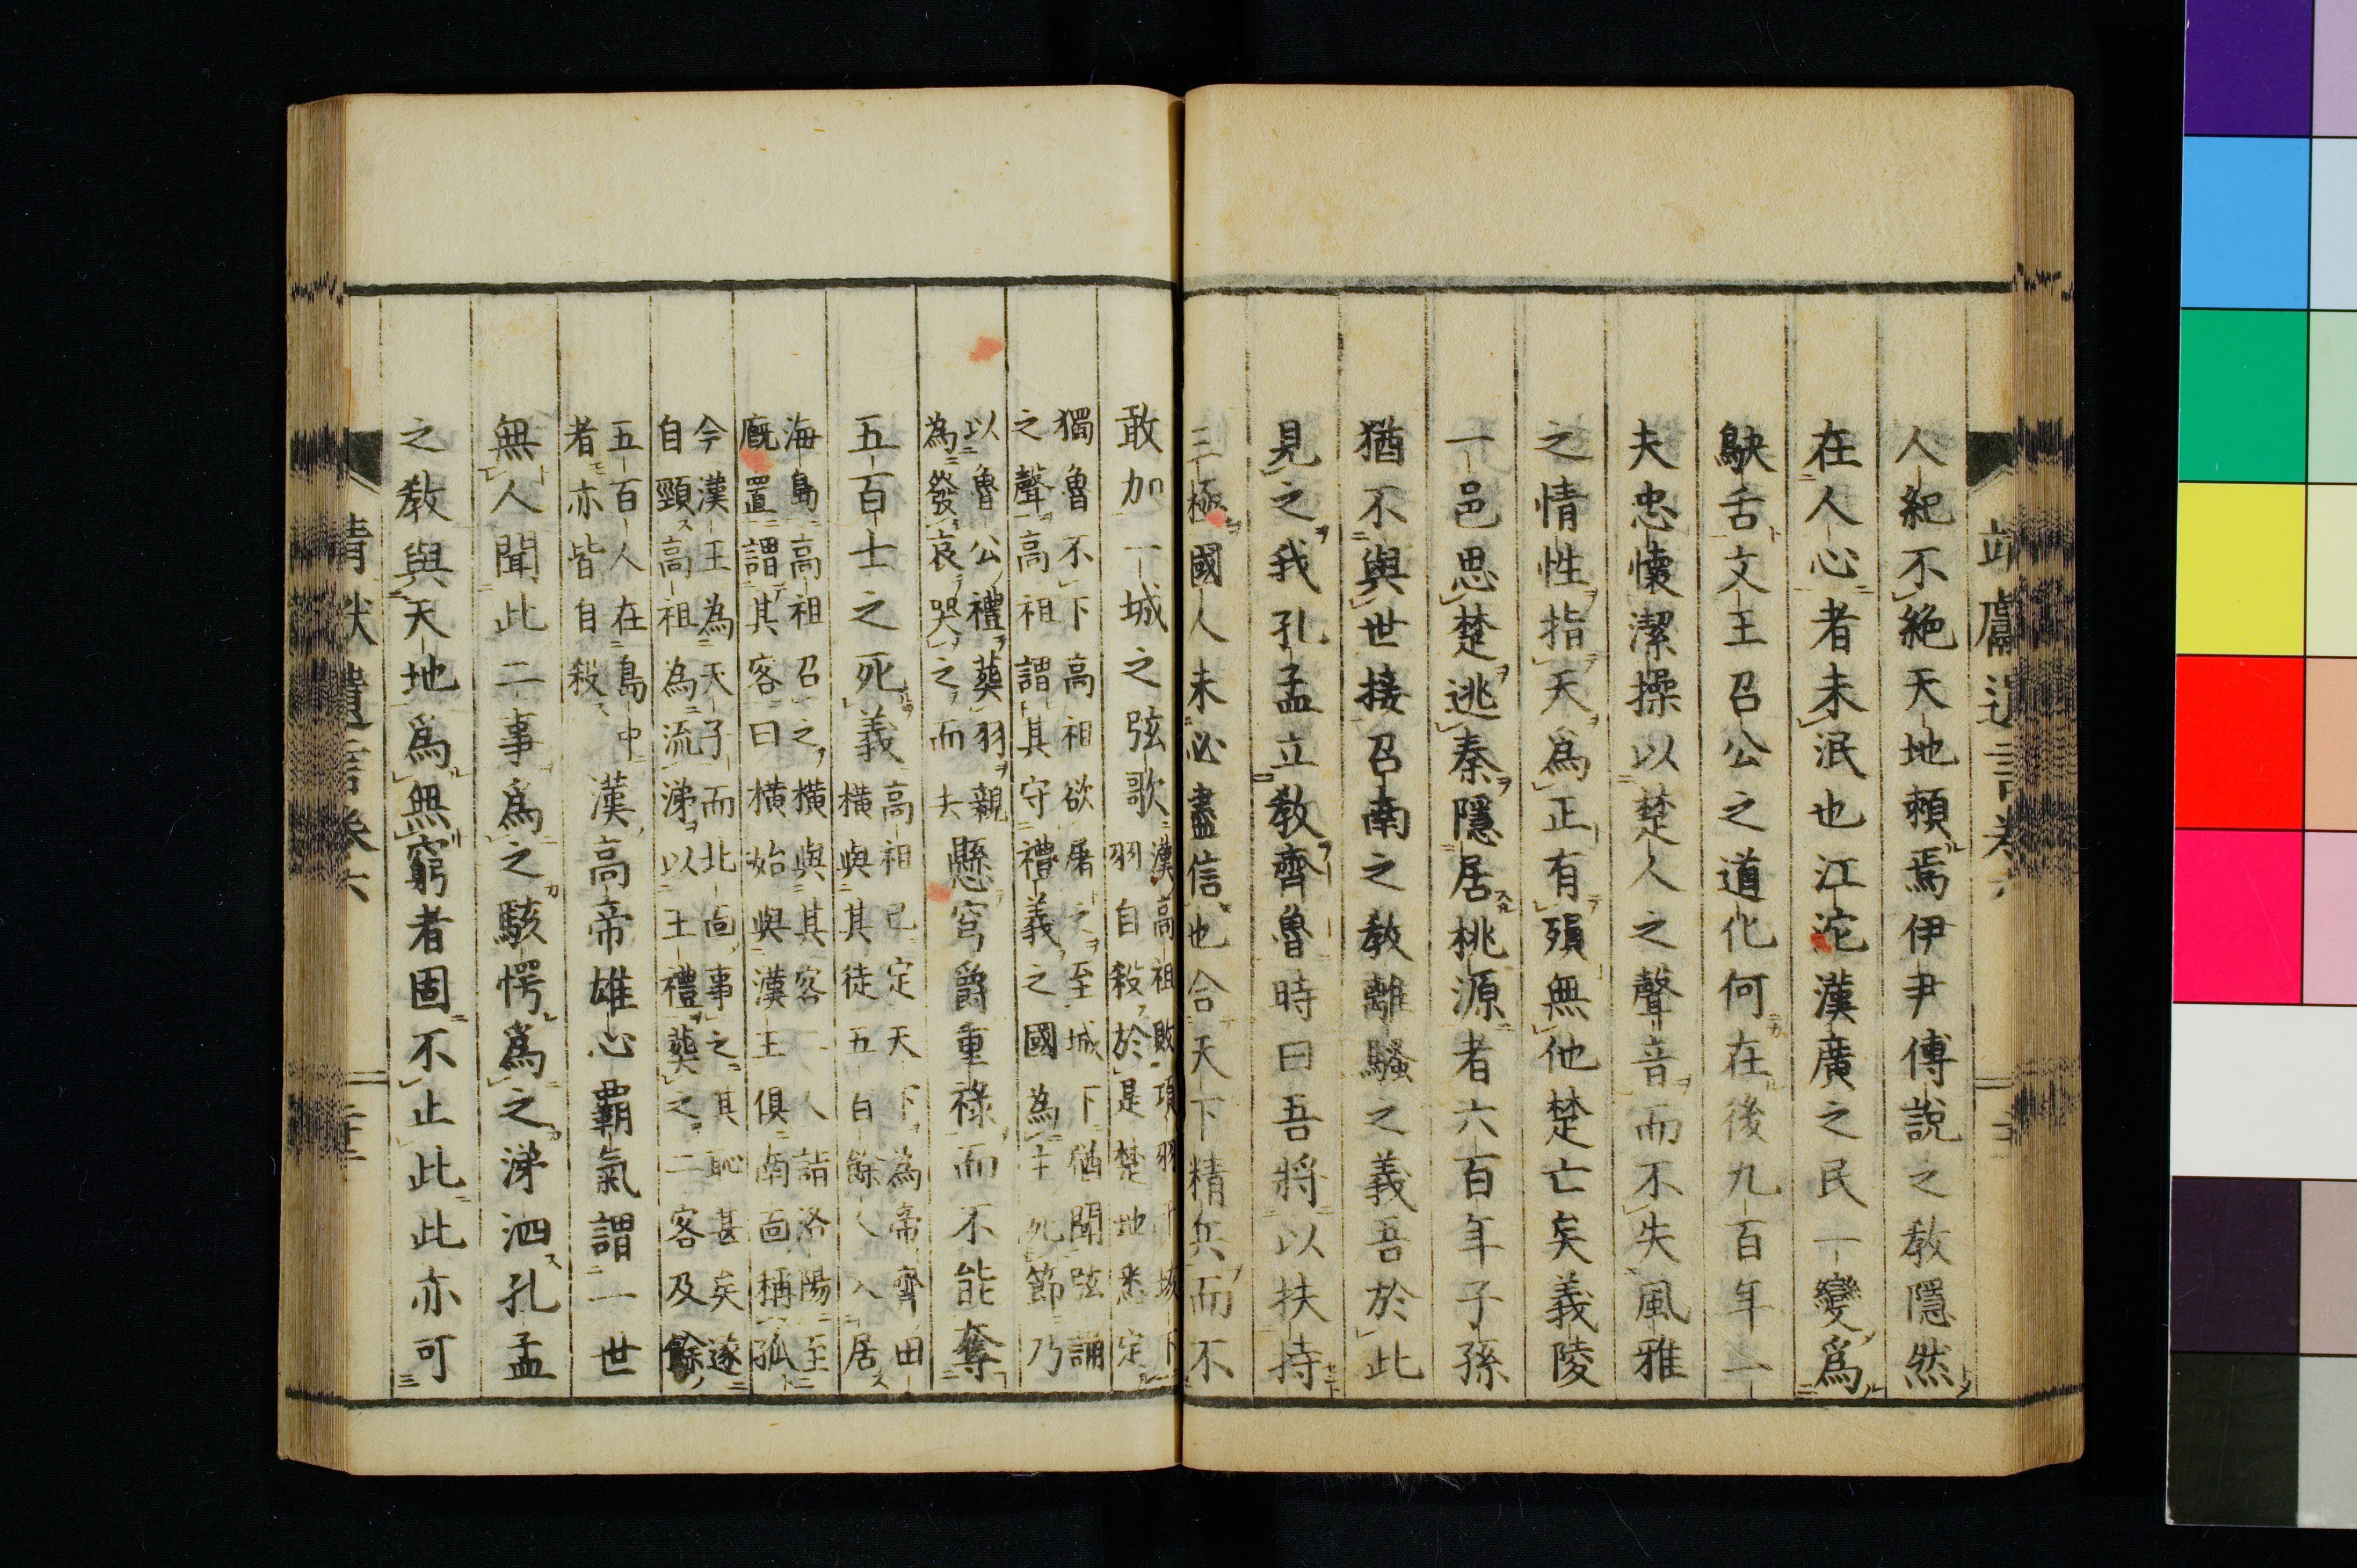 人紀不絕天地賴焉伊尹傅說之敎隱然
在人心者未泯也江沱漢廣之民一變爲
鴃舌文王召公之道化何在後九百年一
夫忠懷潔操以楚人之聲音而不失風雅
之情性指天爲正有殞無他楚亡矣義陵
一邑思楚逃秦隱居桃源者六百年子孫
猶不與世接召南之敎離騷之義吾於此
見之我孔孟立敎齊魯時曰吾將以扶持
三極國人未必盡信也合天下精兵而不
敢加一城之弦歌漢高祖敗項羽垓下
羽自殺於是楚地悉定
獨魯不下高祖欲屠之至城下猶聞弦誦
之聲高祖謂其守禮義之國為主死節乃
以魯公禮葬羽親
為發哀哭之而去懸穹爵重祿而不能奪
五百士之死義高祖已定天下為帝齊田
橫與其徒五百餘人入居
海島高祖召之橫與其客二人詣洛陽至
廐置謂其客曰橫始與漢王俱南面稱孤
今漢王為天子而北面事之其恥甚矣遂
自頸高祖為流涕以王禮葬之二客及餘
五百人在島中
者亦皆自殺漢高帝雄心霸氣謂一世
無人聞此二事爲之駭愕爲之涕泗孔孟
之敎與天地爲無窮者固不止此此亦可